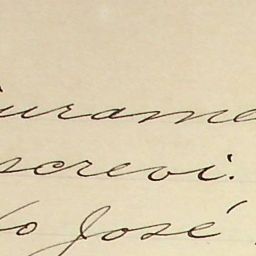 jurame
screvi.
José